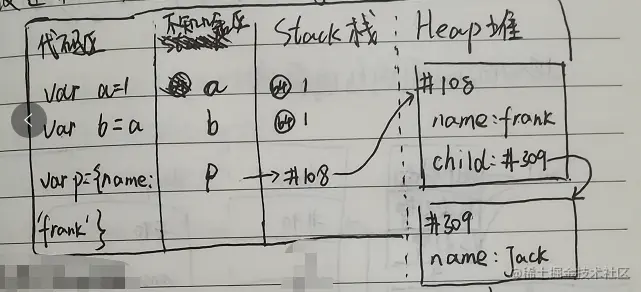 代码区 不知什么区 Stack 栈 Heap 堆
var a=1 a 64 1
var b=a b 64 1
var p={name: p #108
'frank'}
#108
name:frank
child:#309
#309
name:Jack
@稀土掘金技术社区